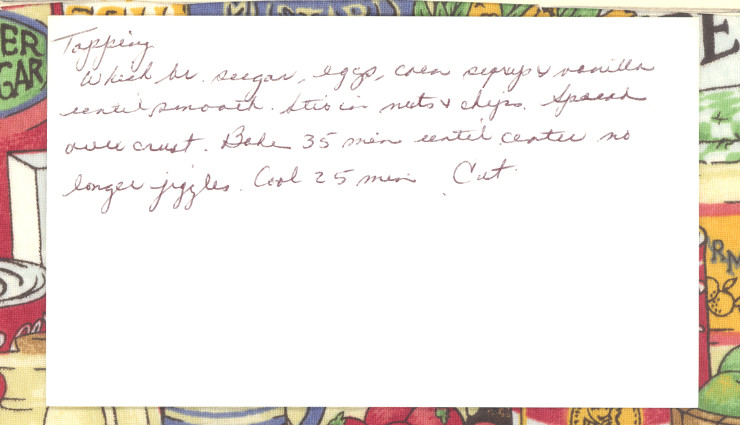 Topping
Whisk br. sugar, eggs, corn syrup & vanilla
until smooth. Stir in nuts & chips. Spread
over crust. Bake 35 min until center no
longer jiggles. Cool 25 min Cut
ER
GAR
E
RM